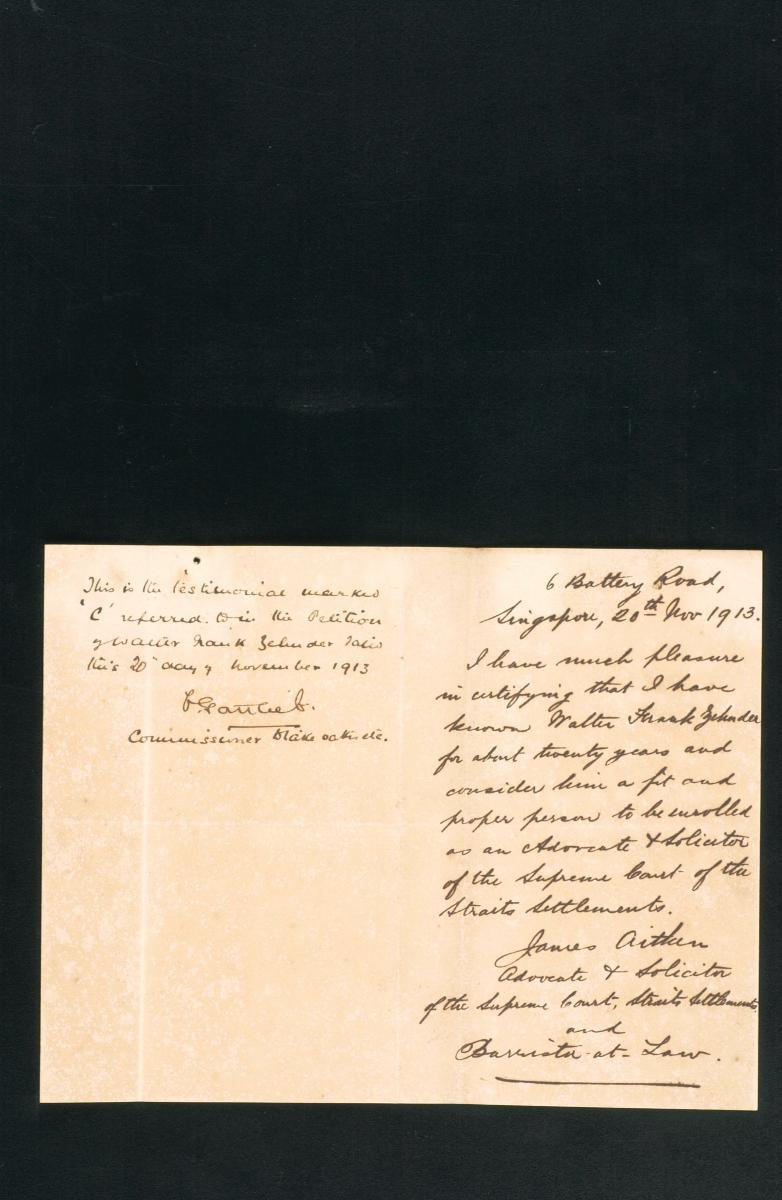 This is the testimonial marked
"C" referred to in the Petition
of Walter Frank Zehnder dated
this 20th day of November 1913
Commissioner &c.
6 Battery Road,
Singapore, 20th Nov 1913.
I have much pleasure
in certifying that I have
known Walter Frank Zehnder
for about twenty years and
consider him a fit and
proper person to be enrolled
as an Advocate & Solicitor
of the Supreme Court of the
Straits Settlements.
James Aitken
Advocate & Solicitor
of the Supreme Court, Straits Settlements
and
Barrister-at-Law.